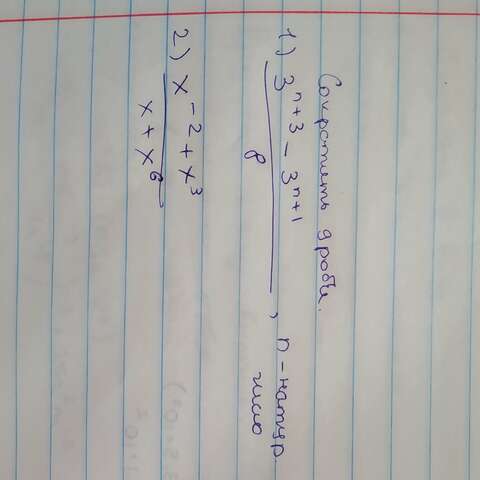 Сократить дроби.
1) 3ⁿ⁺³ − 3ⁿ⁺¹
8
, n - натур.
число
2) x⁻² + x³
x + x⁶